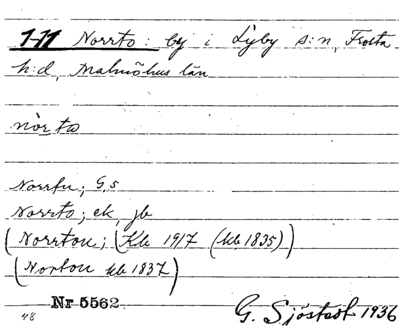 1-11 Norrto: by i Lyby s:n, Frosta
h:d, Malmöhus län
nòrto
Norrfu; G,5
Norrto; ek, jb
(Norrtou; (Ktb 1917 (hb 1835))
(Nortou hb 1837)
Nr 5562
48
G. Sjöstedt 1936